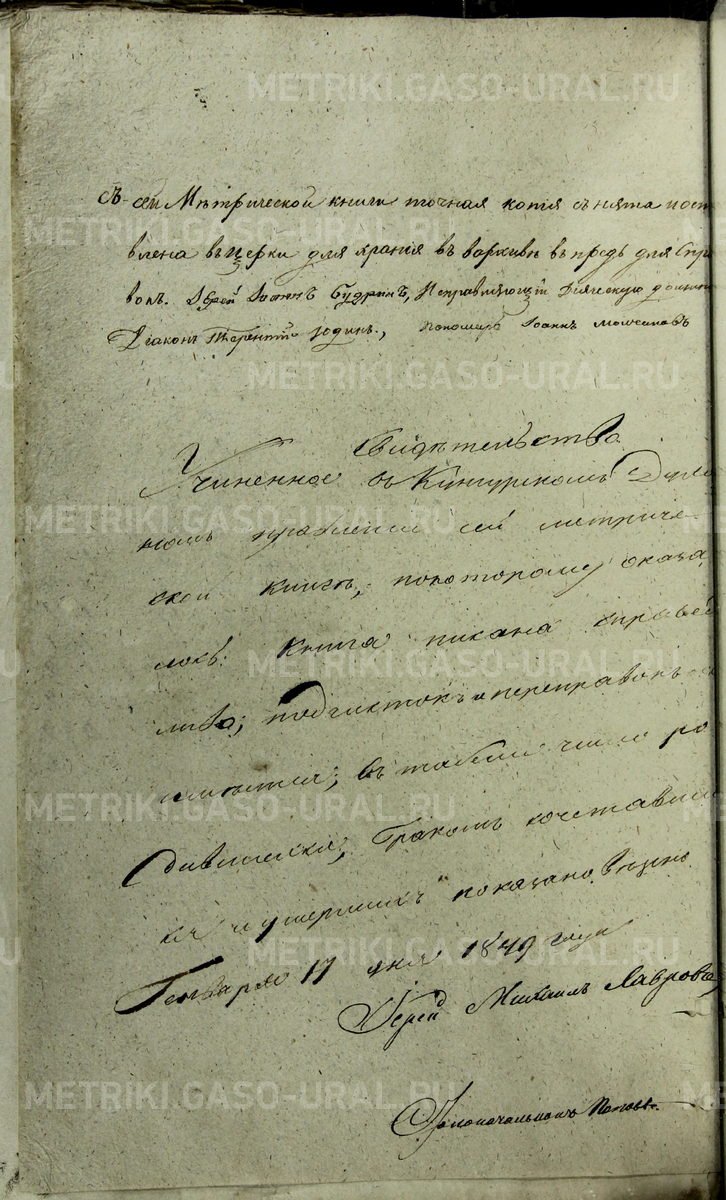 METRIKI.GASO-URAL.RU
Съ сей Метрической книги точная копія снята и оста
влена въ церкви для храненія въ архивѣ впредь для спра
вокъ. Іерей Іоаннъ Будринъ, Исправляющій дьяческую должно
Діаконъ Терентій Юдинъ, пономарь Іоаннъ
Свидѣтельство
Учиненное въ Кунгурскомъ Духо
номъ правленіи сей метриче
ской книгѣ, по которому оказа
лось: книга писана справед
ливо; подчистокъ и переправокъ
имѣется; въ табели число ро
дившихся, бракомъ сочетавши
хся и умершихъ показано вѣрно
Генваря 17 дня 1849 года
Іерей Михаилъ Лавровъ
Столоначальникъ Поповъ.